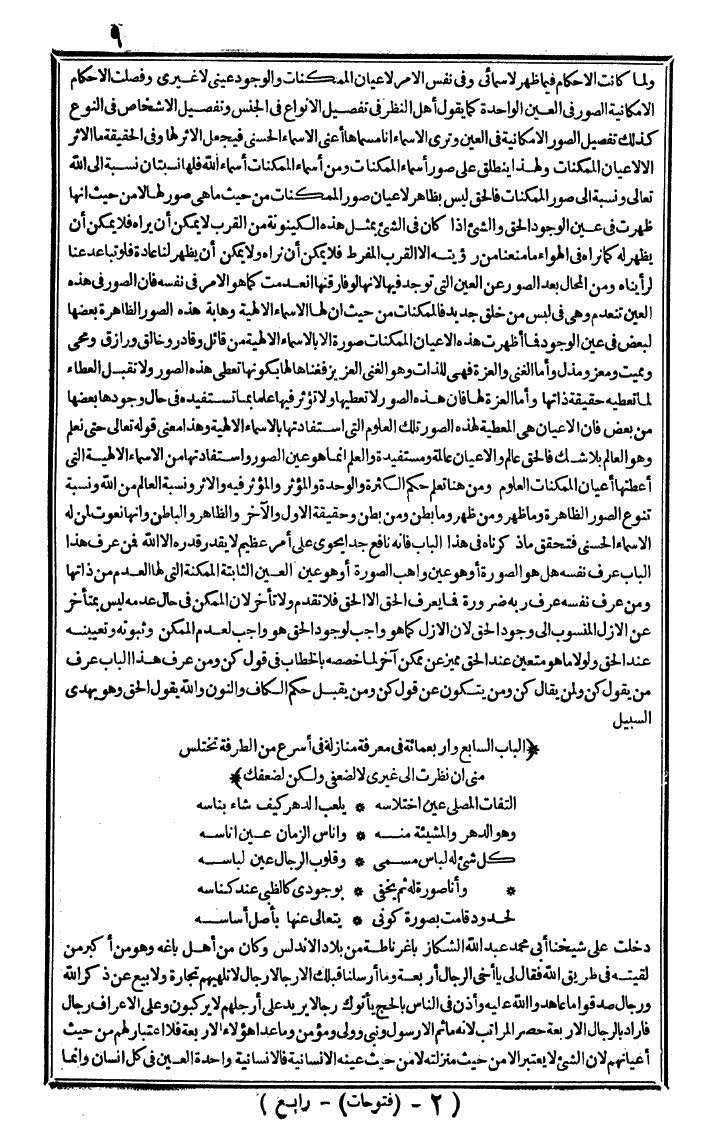 ٩
ولما كانت الاحكام فيما ظهر لاسمائى وفى نفس الامر لاعيان الممكنات والوجود عينى لا غيرى وفصلت الاحكام
الامكانية الصور فى العين الواحدة كما يقول أهل النظر فى تفصيل الانواع فى الجنس وتفصيل الاشخاص فى النوع
كذلك تفصيل الصور الامكانية فى العين وترى الاسماء انا مسماها أعنى الاسماء الحسنى فيجعل الاثر لها وفى الحقيقة ما الاثر
الا لاعيان الممكنات ولهذا ينطلق على صور أسماء الممكنات ومن أسماء الممكنات أسماء الله فلها نسبتان نسبة الى الله
تعالى ونسبة الى صور الممكنات فالحق ليس بظاهر لاعيان صور الممكنات من حيث ما هى صور لها لا من حيث انها
ظهرت فى عين الوجود الحق والشئ اذا كان فى الشئ بمثل هذه الكينونة من القرب لا يمكن أن يراه فلا يمكن أن
يظهر له كما نراه فى الهواء ما منعنا من رؤيته الا القرب المفرط فلا يمكن أن نراه ولا يمكن أن يظهر لنا عادة فلو تباعد عنا
لرأيناه ومن المحال بعد الصور عن العين التى توجد فيها لانها لو فارقتها انعدمت كما هو الامر فى نفسه فان الصور فى هذه
العين تنعدم وهى فى لبس من خلق جديد فالممكنات من حيث ان لها الاسماء الالهية وهابة هذه الصور الظاهرة بعضها
لبعض فى عين الوجود فما أظهرت هذه الاعيان الممكنات صورة الا بالاسماء الالهية من قائل وقادر وخالق ورازق ومحى
ومميت ومعز ومذل وأما الغنى والعزة فهى للذات وهو الغنى العزيز فغناها لها بكونها تعطى هذه الصور ولا تقبل العطاء
لما تعطيه حقيقة ذاتها وأما العزة لها فان هذه الصور لا تعطيها ولا تؤثر فيها علما بما تستفيده فى حال وجودها بعضها
من بعض فان الاعيان هى المعطية لهذه الصور تلك العلوم التى استفادتها بالاسماء الالهية وهذا معنى قوله تعالى حتى نعلم
وهو العالم بلا شك فالحق عالم والاعيان عالمة ومستفيدة والعلم انما هو عين الصور واستفادتها من الاسماء الالهية التى
أعطتها أعيان الممكنات العلوم ومن هنا تعلم حكم الكثرة والوحدة والمؤثر والمؤثر فيه والاثر ونسبة العالم من الله ونسبة
تنوع الصور الظاهرة وما ظهر ومن ظهر وما بطن ومن بطن وحقيقة الاول والآخر والظاهر والباطن وانها نعوت لمن له
الاسماء الحسنى فتحقق ما ذكرناه فى هذا الباب فانه نافع جدا يحوى على أمر عظيم لا يقدر قدره الا الله فمن عرف هذا
الباب عرف نفسه هل هو الصورة أو هو عين واهب الصورة أو هو عين العين الثابتة الممكنة التى لها العدم من ذاتها
ومن عرف نفسه عرف ربه ضرورة فما يعرف الحق الا الحق فلا تقدم ولا تأخر لان الممكن فى حال عدمه ليس بمتأخر
عن الازل المنسوب الى وجود الحق لان الازل كما هو واجب لوجود الحق هو واجب لعدم الممكن وثبوته وتعيينه
عند الحق ولولا ما هو متعين عند الحق مميز عن ممكن آخر لما خصصه بالخطاب فى قول كن ومن عرف هذا الباب عرف
من يقول كن ولمن يقال كن ومن يتكون عن قول كن ومن يقبل حكم الكاف والنون والله يقول الحق وهو يهدى
السبيل
﴿الباب السابع وأربعمائة فى معرفة منازلة فى أسرع من الطرفة تختلس
منى ان نظرت الى غيرى لا لضعفى ولكن لضعفك﴾
التفات المصلى عين اختلاسه * يلعب الدهر كيف شاء بناسه
وهو الدهر والمشيئة منه * واناس الزمان عين اناسه
كل شئ له لباس مسمى * وقلوب الرجال عين لباسه
* وأنا صورة له ثم يخفى * بوجودى كالظبى عند كناسه
لحدود قامت بصورة كونى * يتعالى عنها بأصل أساسه
دخلت على شيخنا أبى محمد عبد الله الشكاز باغرناطة من بلاد الاندلس وكان من أهل باغه وهو من أكبر من
لقيته فى طريق الله فقال لى يا أخى الرجال أربعة وما أرسلنا قبلك الا رجالا رجال لا تلهيهم تجارة ولا بيع عن ذكر الله
ورجال صدقوا ما عاهدوا الله عليه وأذن فى الناس بالحج يأتوك رجالا يريد على أرجلهم لا يركبون وعلى الاعراف رجال
فاراد بالرجال الاربعة حصر المراتب لانه ما ثم الا رسول ونبى وولى ومؤمن وما عدا هؤلاء الاربعة فلا اعتبار لهم من حيث
أعيانهم لان الشئ لا يعتبر الا من حيث منزلته لا من حيث عينه الانسانية فالانسانية واحدة العين فى كل انسان وانما
( ٢ - (فتوحات) - رابع )